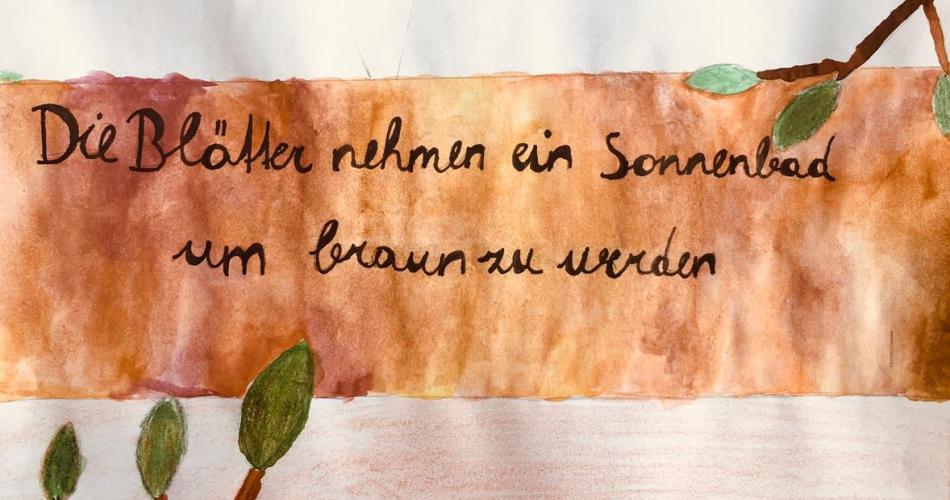 Die Blätter nehmen ein Sonnenbad
um braun zu werden